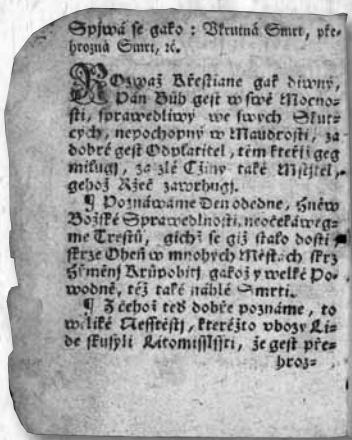 Spjwá se gako: Vkrutná Smrt, pře-
hrozná Smrt, ꝛc.
ROzwaž Křestiane gak diwný,
Pán Bůh gest w swé Mocno-
sti, sprawedliwý we swých Skut-
cych, nepochopný w Maudrosti, za
dobré gest Odplatitel, těm kteřj geg
milugj, za zlé Cžiny také Mstjtel,
gehož Ržeč zawrhugj.
¶ Poznáwáme Den odedne, Hněw
Božské Sprawedlnosti, neočekáweg-
me Trestů, gichž se giž stalo dosti
skrze Oheň w mnohých Městách skrz
Hřměnj Krůpobitj gakož y welké Po-
wodně, též také náhlé Smrti.
¶ Z čehož teď dobře poznáme, to
weliké Nesstěstj, kterěžto vbozy Li-
dé skusyli Litomisslsstj, že gest pře-
hroz-